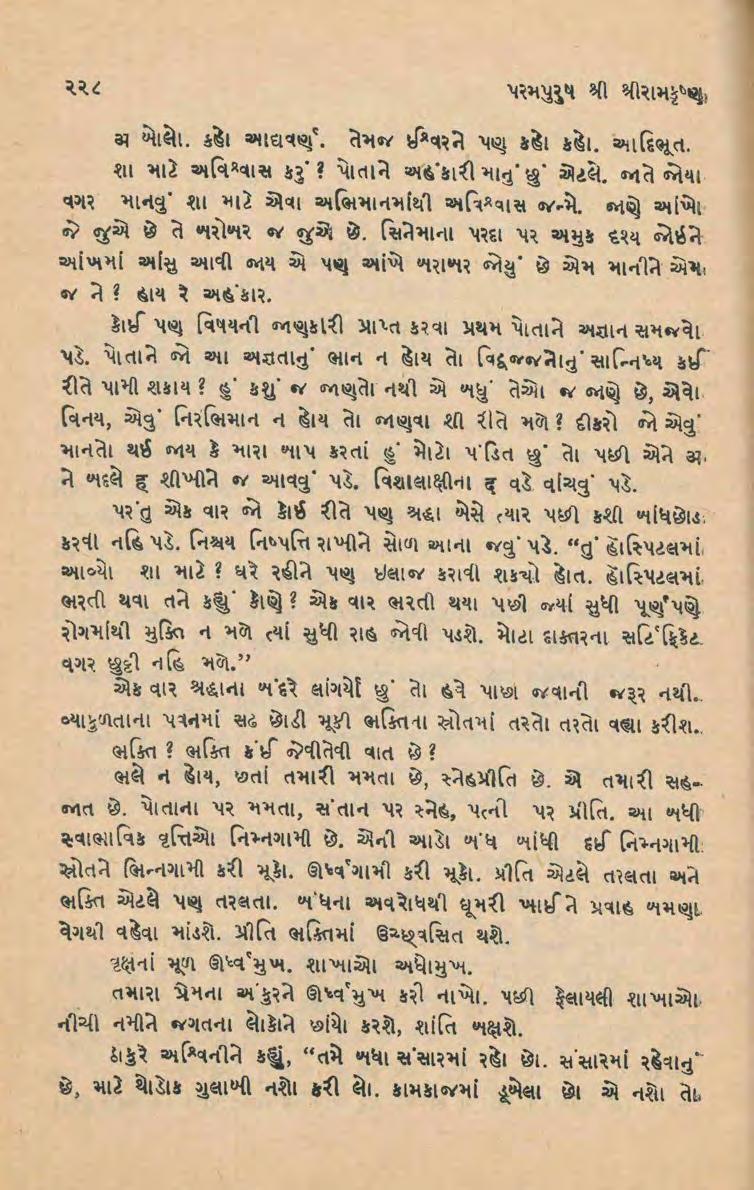 ૨૨૮ પરમપુરુષ શ્રી શ્રીરામકૃષ્ણ
अ બોલો. કહો આદ્યવર્ણ. તેમજ ઈશ્વરને પણ કહો કહો. આદિભૂત.
શા માટે અવિશ્વાસ કરું ? પોતાને અહંકારી માનું છું એટલે. જાતે જોયા
વગર માનવું શા માટે એવા અભિમાનમાંથી અવિશ્વાસ જન્મે. જાણે આંખો
જે જુએ છે તે બરોબર જ જુએ છે. સિનેમાના પરદા પર અમુક દૃશ્ય જોઈને
આંખમાં આંસુ આવી જાય એ પણ આંખે બરાબર જોયું છે એમ માનીને એમ
જ ને ? હાય રે અહંકાર.
કોઈ પણ વિષયની જાણકારી પ્રાપ્ત કરવા પ્રથમ પોતાને અજ્ઞાન સમજવો
પડે. પોતાને જો આ અજ્ઞતાનું ભાન ન હોય તો વિદ્વજ્જનોનું સાન્નિધ્ય કઈ
રીતે પામી શકાય ? હું કશું જ જાણતો નથી એ બધું તેઓ જ જાણે છે, એવો
વિનય, એવું નિરભિમાન ન હોય તો જાણવા શી રીતે મળે ? દીકરો જો એવું
માનતો થઈ જાય કે મારા બાપ કરતાં હું મોટો પંડિત છું તો પછી એને अ
ને બદલે ह શીખીને જ આવવું પડે. વિશાલાક્ષીના द વડે વાંચવું પડે.
પરંતુ એક વાર જો કોઈ રીતે પણ શ્રદ્ધા બેસે ત્યાર પછી કશી બાંધછોડ
કરવી નહિ પડે. નિશ્ચય નિષ્પત્તિ રાખીને સોળ આના જવું પડે. “તું હોસ્પિટલમાં
આવ્યો શા માટે ? ઘરે રહીને પણ ઇલાજ કરાવી શકયો હોત. હોસ્પિટલમાં
ભરતી થવા તને કહ્યું કોણે ? એક વાર ભરતી થયા પછી જ્યાં સુધી પૂર્ણપણે
રોગમાંથી મુક્તિ ન મળે ત્યાં સુધી રાહ જોવી પડશે. મોટા દાક્તરના સર્ટિફિકેટ
વગર છુટ્ટી નહિ મળે.”
એક વાર શ્રદ્ધાના બંદરે લાંગર્યો છું તો હવે પાછા જવાની જરૂર નથી.
વ્યાકુળતાના પવનમાં સઢ છોડી મૂકી ભક્તિના સ્રોતમાં તરતો તરતો વહ્યા કરીશ.
ભક્તિ ? ભક્તિ કંઈ જેવીતેવી વાત છે ?
ભલે ન હોય, છતાં તમારી મમતા છે, સ્નેહપ્રીતિ છે. એ તમારી સહ-
જાત છે. પોતાના પર મમતા, સંતાન પર સ્નેહ, પત્ની પર પ્રીતિ. આ બધી
સ્વાભાવિક વૃત્તિઓ નિમ્નગામી છે. એની આડો બંધ બાંધી દઈ નિમ્નગામી
સ્રોતને ભિન્નગામી કરી મૂકો. ઊર્ધ્વગામી કરી મૂકો. પ્રીતિ એટલે તરલતા અને
ભક્તિ એટલે પણ તરલતા. બંધના અવરોધથી ઘૂમરી ખાઈને પ્રવાહ બમણા
વેગથી વહેવા માંડશે. પ્રીતિ ભક્તિમાં ઉચ્છ્વસિત થશે.
વૃક્ષનાં મૂળ ઊર્ધ્વમુખ. શાખાઓ અધોમુખ.
તમારા પ્રેમના અંકુરને ઊર્ધ્વમુખ કરી નાખો. પછી ફેલાયલી શાખાઓ
નીચી નમીને જગતના લોકોને છાંયો કરશે, શાંતિ બક્ષશે.
ઠાકુરે અશ્વિનીને કહ્યું, “તમે બધા સંસારમાં રહો છો. સંસારમાં રહેવાનું
છે, માટે થોડોક ગુલાબી નશો કરી લો. કામકાજમાં ડૂબેલા છો એ નશો તો